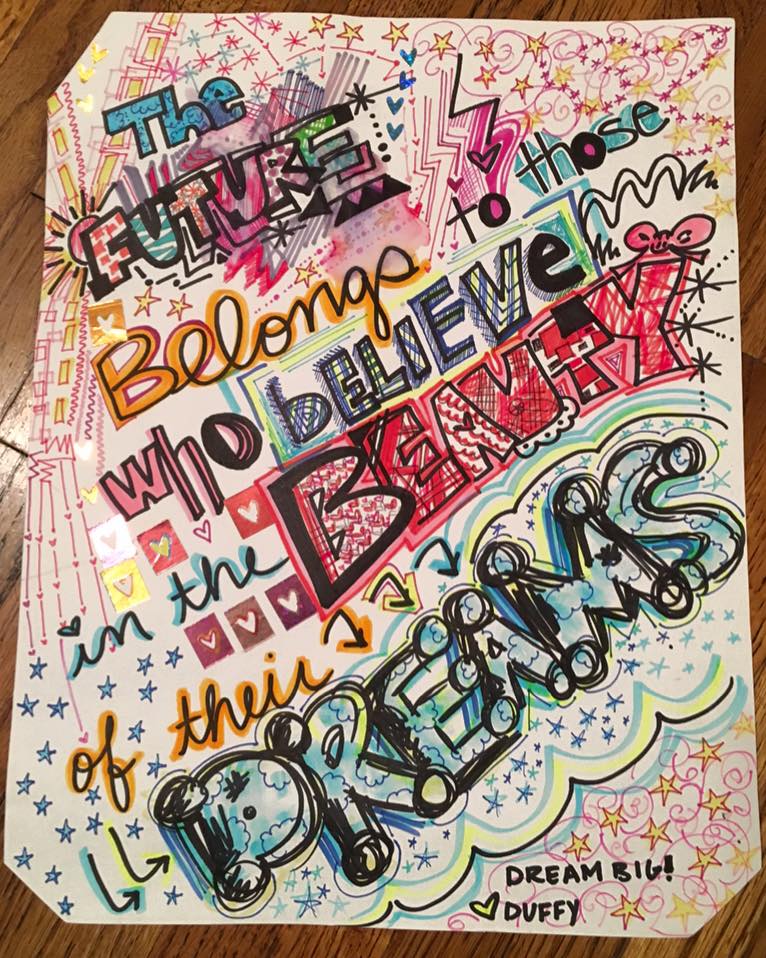 The
FUTURE
Belongs to those
who bELIEVe
in the BEAUTY
of their
DREAMS
DREAM BIG!
DUFFY